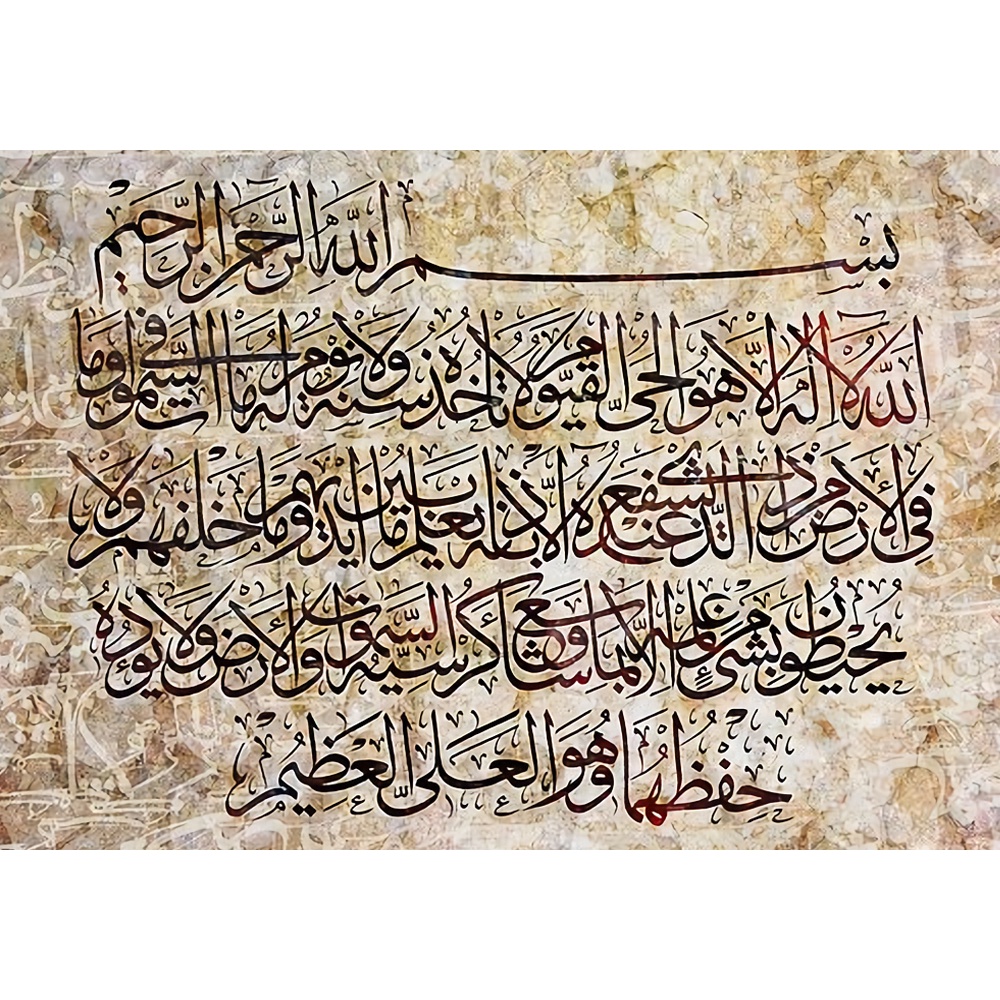 بِسْمِ اللَّهِ الرَّحْمَٰنِ الرَّحِيمِ
اللَّهُ لَا إِلَٰهَ إِلَّا هُوَ الْحَيُّ الْقَيُّومُ لَا تَأْخُذُهُ سِنَةٌ وَلَا نَوْمٌ لَهُ مَا فِي السَّمَٰوَاتِ وَمَا
فِي الْأَرْضِ مَنْ ذَا الَّذِي يَشْفَعُ عِنْدَهُ إِلَّا بِإِذْنِهِ يَعْلَمُ مَا بَيْنَ أَيْدِيهِمْ وَمَا خَلْفَهُمْ وَلَا
يُحِيطُونَ بِشَيْءٍ مِنْ عِلْمِهِ إِلَّا بِمَا شَاءَ وَسِعَ كُرْسِيُّهُ السَّمَٰوَاتِ وَالْأَرْضَ وَلَا يَئُودُهُ
حِفْظُهُمَا وَهُوَ الْعَلِيُّ الْعَظِيمُ